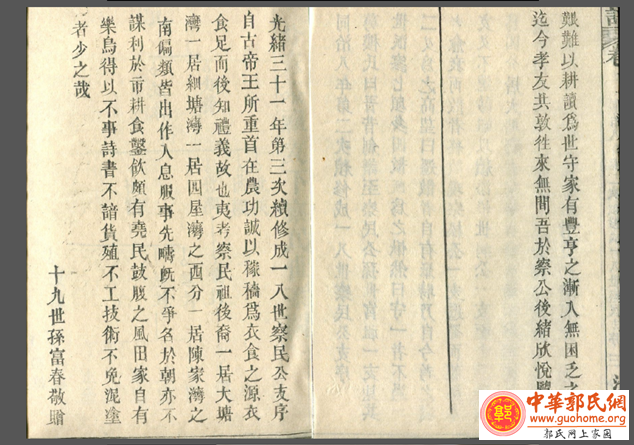 艱難以耕讀爲世守家有豐亨之漸人無困乏之
迄今孝友共敦往來無間吾於察公後緒欣悅
光緒三十一年第三次續修成一八世察民公支序
自古帝王所重首在農功誠以稼穡爲衣食之源衣
食足而後知禮義故也夷考察民祖後裔一居大塘
灣一居細塘灣一居四屋灣之西分一居陳家灣之
南偏類皆出作入息服事先疇旣不爭名於朝亦不
謀利於市耕食鑿飲頗有堯民鼓腹之風田家自有
樂烏得以不事詩書不諳貨殖不工技術不免泥塗
者少之哉
十九世孫富春敬贈
郭
中華郭氏網
www.guohome.org
郭氏网上家園